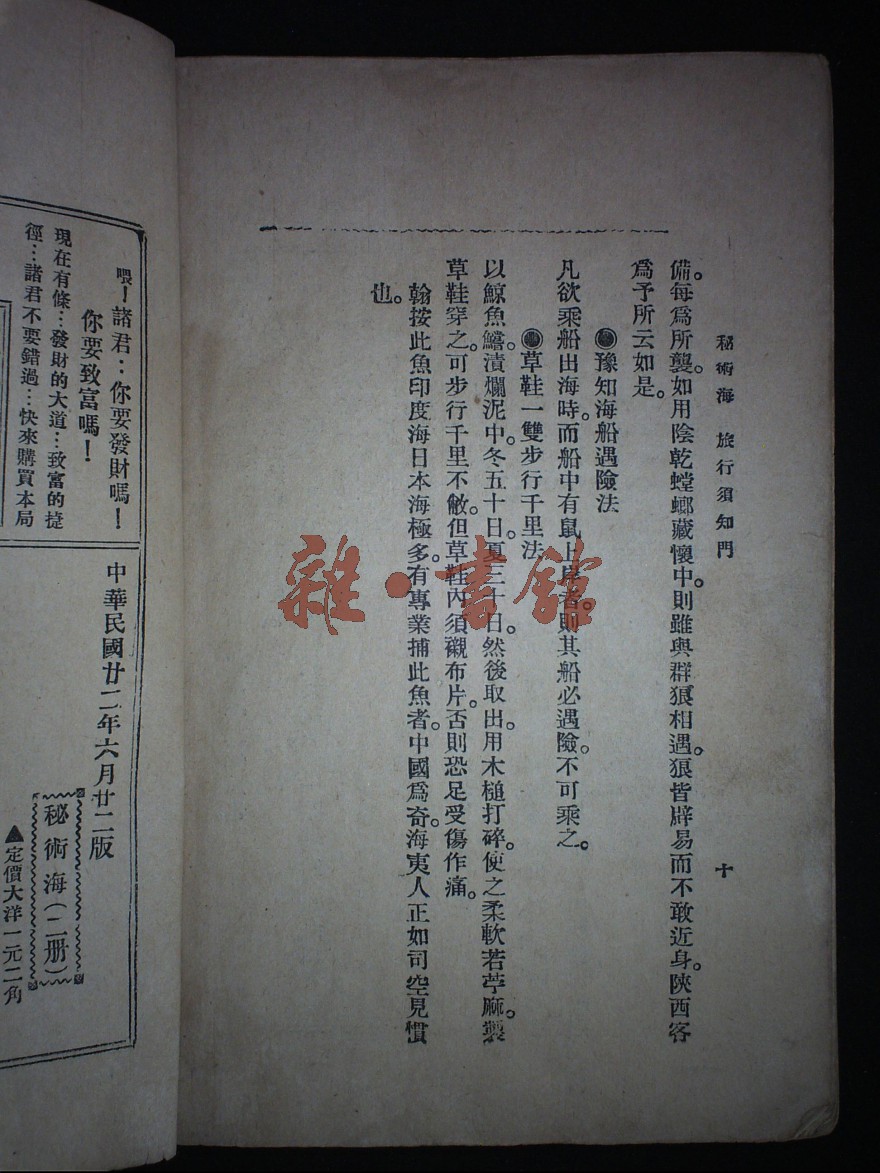 秘術海 旅行須知門 十
備。每爲所襲。如用陰乾螳螂藏懷中。則雖與群狼相遇。狼皆辟易而不敢近身。陝西客
爲予所云如是。
●豫知海船遇險法
凡欲乘船出海時。而船中有鼠上岸者。則其船必遇險。不可乘之。
●草鞋一雙步行千里法
以鯨魚鱔漬爛泥中。冬五十日。夏三十日。然後取出。用木槌打碎。使之柔軟若苧麻。製
草鞋穿之。可步行千里不敝。但草鞋內須襯布片。否則恐足受傷作痛。
翰按此魚印度海日本海極多。有專業捕此魚者。中國爲奇。海夷人正如司空見慣
也。
雜·書館
喂!諸君:你要發財嗎!
你要致富嗎!
現在有條…發財的大道…致富的捷
徑…諸君不要錯過…快來購買本局
中華民國廿二年六月廿二版
秘術海(二册)
▲定價大洋一元二角